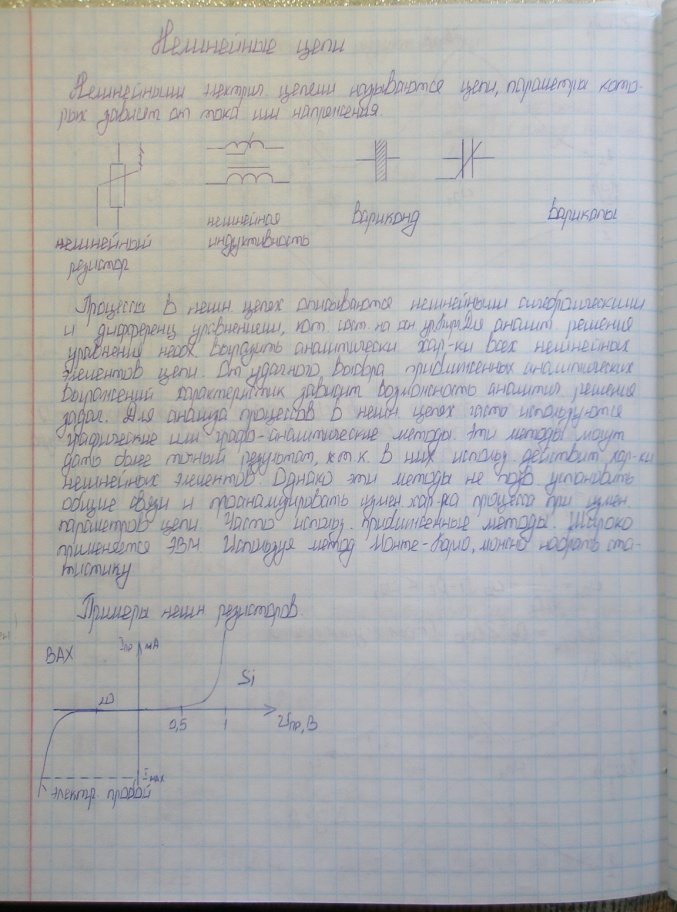 Нелинейные цепи
Нелинейными электрич. цепями называются цепи, параметры кото-
рых зависят от тока или напряжения.
нелинейный
резистор
нелинейная
индуктивность
Вариконд
Варикапы
Процессы в нелин цепях описываются нелинейными алгебраическими
и дифференц уравнениями, кот Для аналит решения
уравнения необх. выразить аналитически хар-ки всех нелинейных
элементов цепи. От удачного выбора приближенных аналитических
выражений характеристик зависит возможность аналитич. решения
задач. Для анализа процессов в нелин цепях часто используются
графические или графо-аналитические методы. Эти методы могут
дать более точный результат, т.к. в них использ. действит хар-ки
нелинейных элементов Однако эти методы не позв установить
общие связи и проанализировать измен хар-ра процесса при измен
параметров цепи. Часто использ. приближенные методы. Широко
применяется ЭВМ Используя метод Монте-Карло, можно набрать ста-
тистику
Примеры нелин резисторов.
ВАХ
Iпр мА
Si
20
0,5
1
Uпр, В
Imax
Электр. пробой